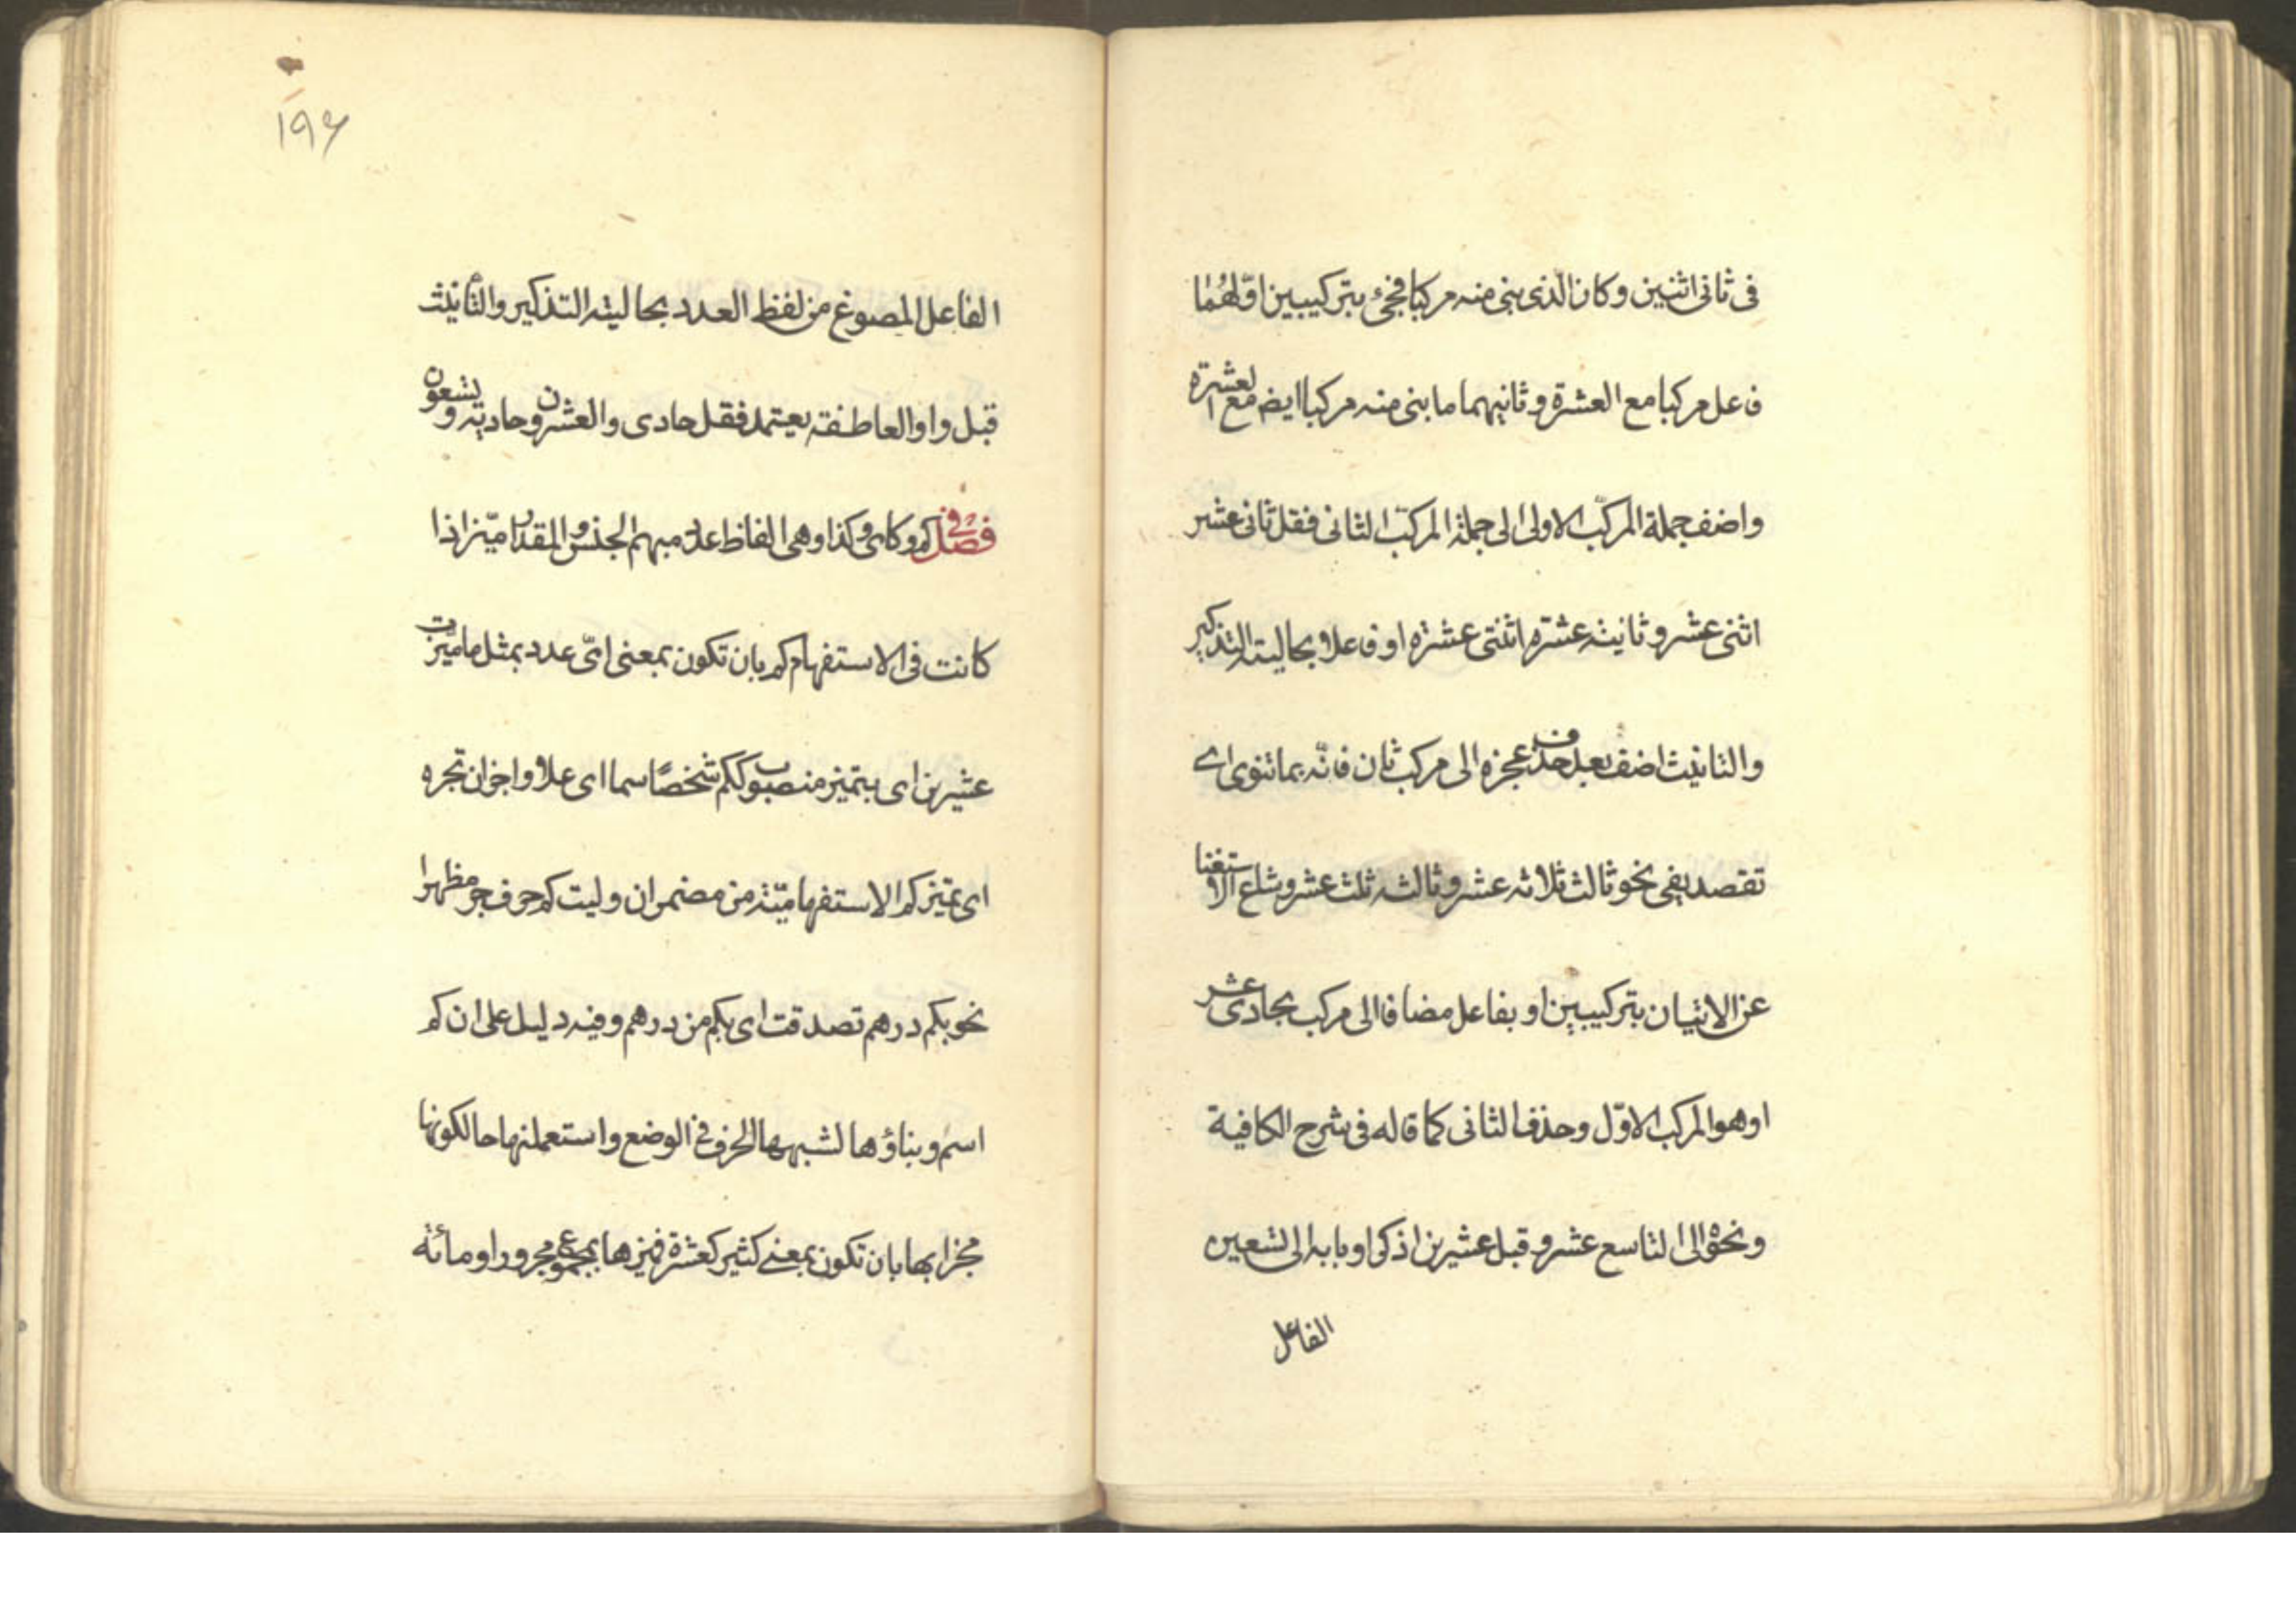 فى ثانى اثنين وكان الّذى بنى منه مركبا فجئ بتركيبين اوّلهُمٰا
فاعل مركبا مع العشرة وثانيهما ما بنى منه مركبا ايض مع العشرة
واضف جملة المركّب الاولى الى جملة المركّب الثانى فقل ثانى عشر
اثنى عشر وثانيته عشره اثنتى عشره او فاعلا بحاليته التذكير
والتانيث اضف بعد حذف عجزه الى مركب ثان فانّه بما تنوى اى
تقصد يفى نحو ثالث ثلاثه عشر وثالثه ثلث عشر وشاع الاستغنا
عن الاتيان بتركيبين او بفاعل مضافا الى مركب بحادى عشر
او هو المركب الاوّل وحذف الثانى كما قاله فى شرح الكافية
ونحوه الى التاسع عشر وقبل عشرين اذكرا وبابه الى تسعين
الفاعل
۱۹۶
الفاعل المصوغ من لفظ العدد بحاليته التذكير والتأنيث
قبل واو العاطفته يعتمد فقل حادى والعشرون وحاديته وتسعون
فصل فى كم وكاى وكذا وهى الفاظ عدد مبهم الجنس والمقدار ميّز اذا
كانت فى الاستفهام كم بان تكون بمعنى اىّ عدد بمثل ما ميّزت
عشرين اى بتميز منصوب ككم شخصًا سما اى علا واجز ان تجره
اى تميز كم الاستفهاميّته من مضمر ان وليت كم حرف جر مظهرا
نحو بكم درهم تصدقت اى بكم من درهم وفيه دليل على ان كم
اسم وبناؤها لشبهها الحرف فى الوضع واستعملنها حالكونها
مخبرا بها بان تكون بمعنى كثير كعشرة فميزها بمجموع مجرور او مائة